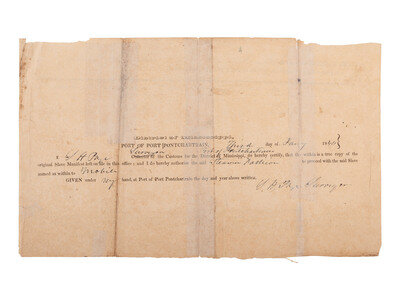 District of Mississippi,
PORT OF PORT PONTCHARTRAIN, day of 184
I, Surveyor Port of Pontchartrain
Collector of the Customs for the District of Mississippi, do hereby certify, that the within is a true copy of the
original Slave Manifest left on file in this office; and I do hereby authorise the said to proceed with the said Slave
named as within to Mobile
GIVEN under my hand, at Port of Port Pontchartrain the day and year above written.
Surveyor